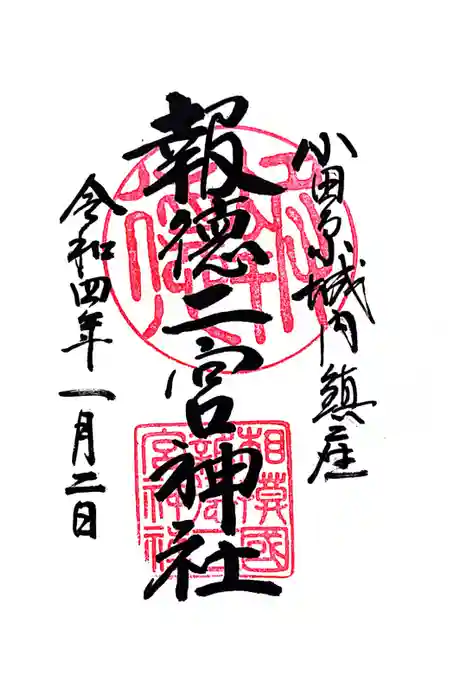 小田原城内鎮座
報徳二宮神社
令和四年一月二日
相模國
報徳二
宮神社